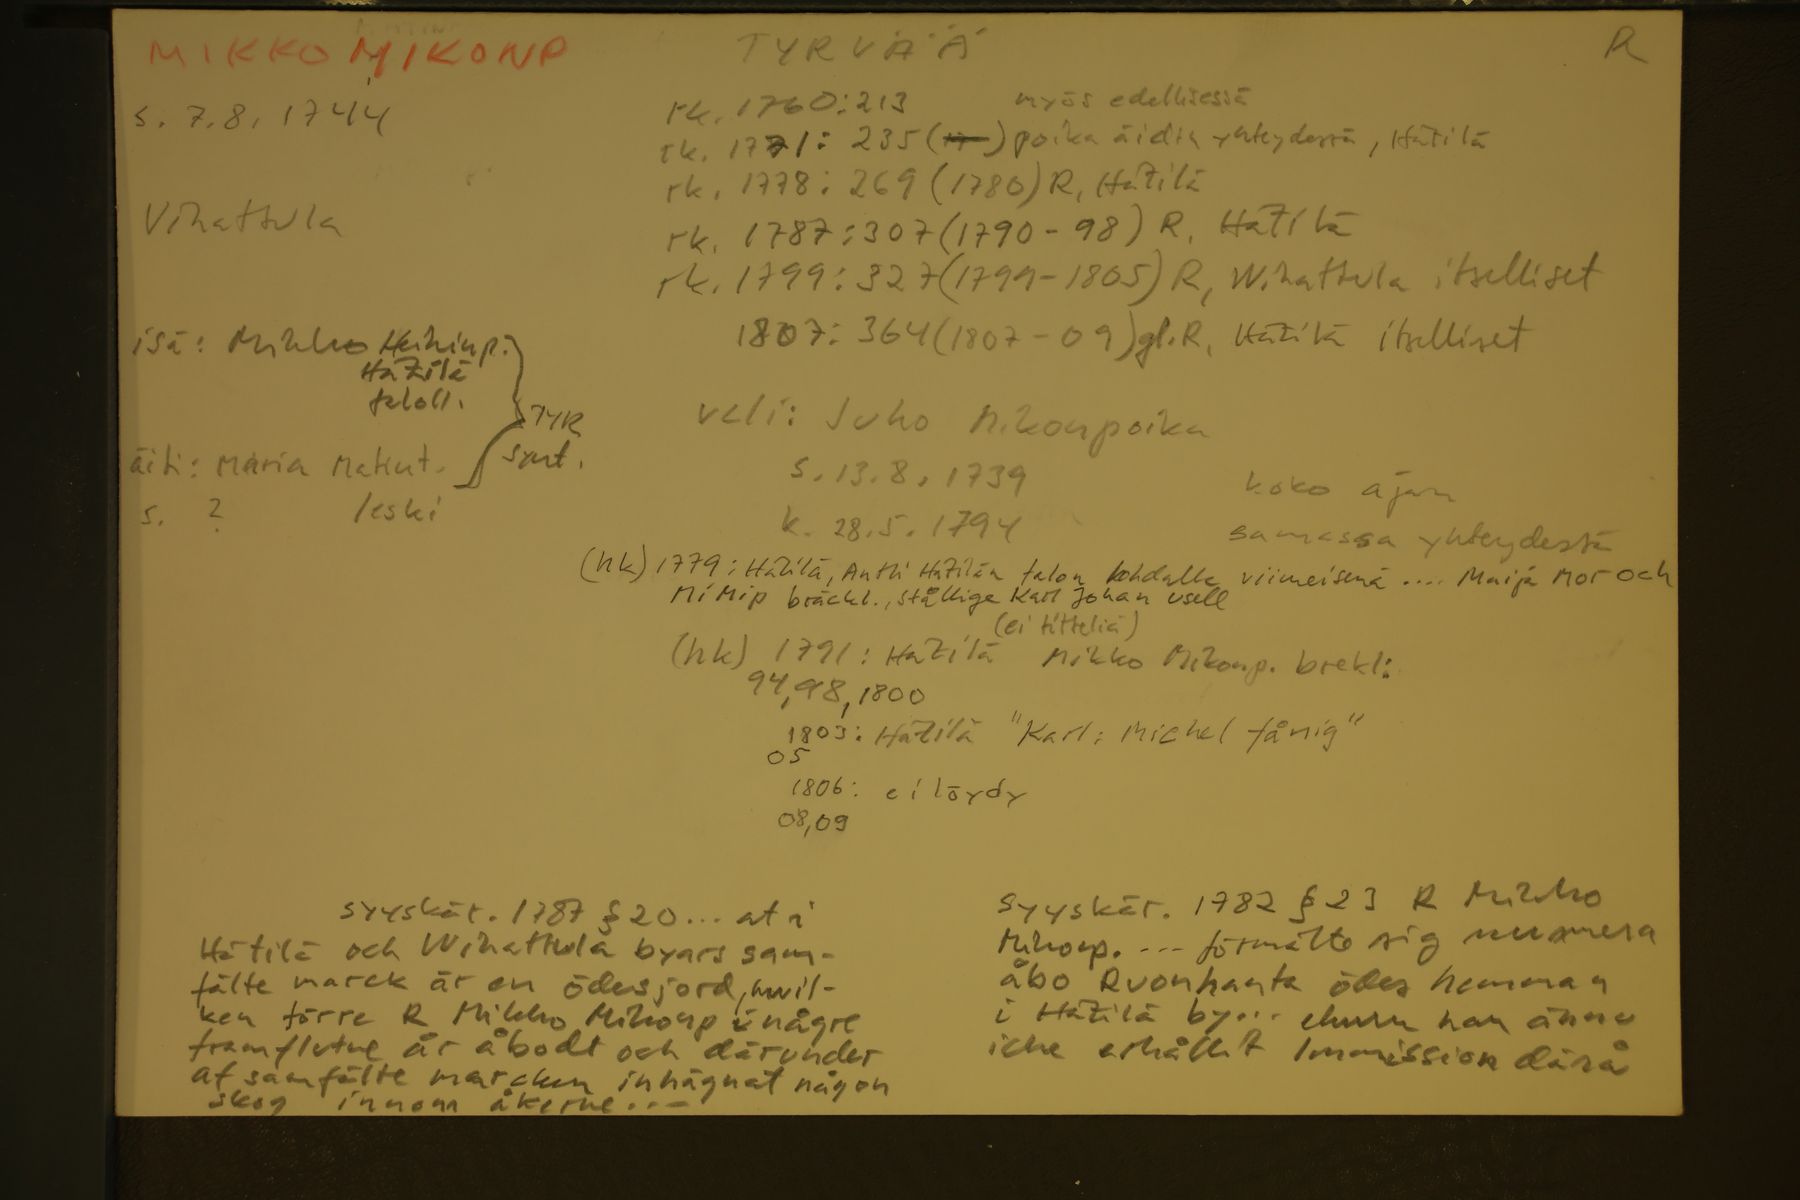 MIKKO MIKONP TYRVÄÄ R
s. 7.8. 1744
rk. 1760:213 myös edellisessä
rk. 1771: 235 ( ) poika äidin yhteydessä, Hätilä
rk. 1778: 269 (1780) R, Hätilä
Vihattula
rk. 1787:307 (1790-98) R. Hätilä
rk. 1799:327 (1799-1805) R, Wihattula itselliset
1807: 364 (1807-09) gl.R, Hätilä itselliset
isä: Mikko Heikinp.
Hätilä
taloll.
äiti: Maria Matint.
s. ? leski
TYR
synt.
veli: Juho Mikonpoika
s. 13.8. 1739
k. 28.5. 1794
koko ajan
samassa yhteydestä
(hk) 1779: Hätilä, Antti Hätilän talon kohdalla viimeisenä .... Maija Mor och
MiMip bräckl., ställige Karl Johan usell
(ei titteliä)
(hk) 1791: Hätilä Mikko Mikonp. brekl:
94,98,1800
1803: Hätilä "Karl: Michel fånig"
05
1806: ei löydy
08,09
syyskär. 1787 § 20 ... at i
Hätilä och Wihattula byars sam-
fälte marck är en ödesjord, hwil-
ken förre R Mikko Mikonp i någre
framflutne år åbodt och därunder
af samfälte marcken inhägnat någon
skog innom åkerne...-
syyskär. 1782 § 23 R Mikko
Mikonp. ... förmälte sig numera
åbo Ruonhanta ödes hemman
i Hätilä by... churu han ännu
icke erhållit Immission därå